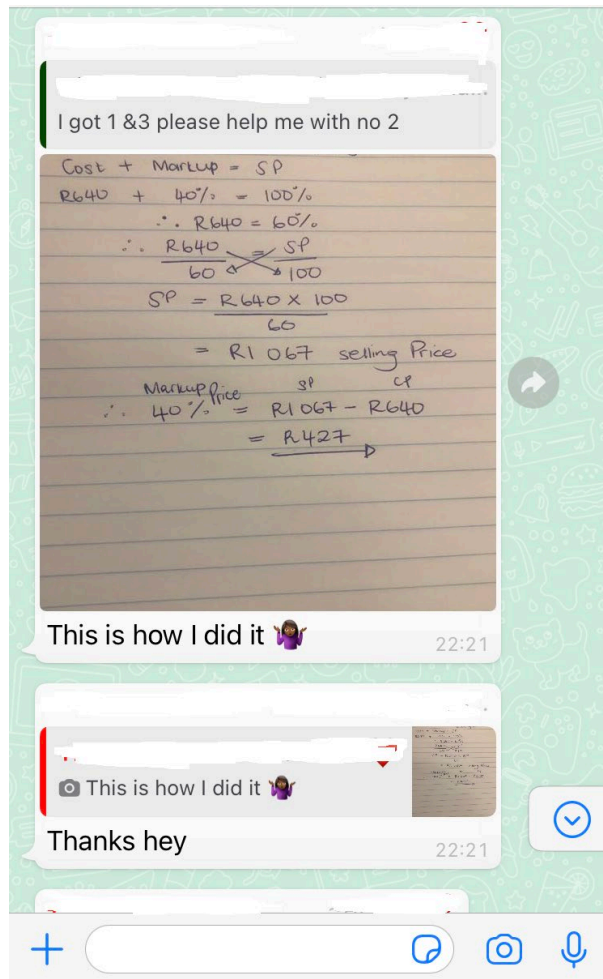 I got 1 &3 please help me with no 2
Cost + Markup = SP
R640 + 40% = 100%
∴ R640 = 60%
∴ R640 = SP
60 100
SP = R640 × 100
60
= R1 067 selling Price
Markup Price SP CP
∴ 40% = R1067 - R640
= R427
This is how I did it 🤷🏾‍♀️
22:21
This is how I did it 🤷🏾‍♀️
Thanks hey
22:21